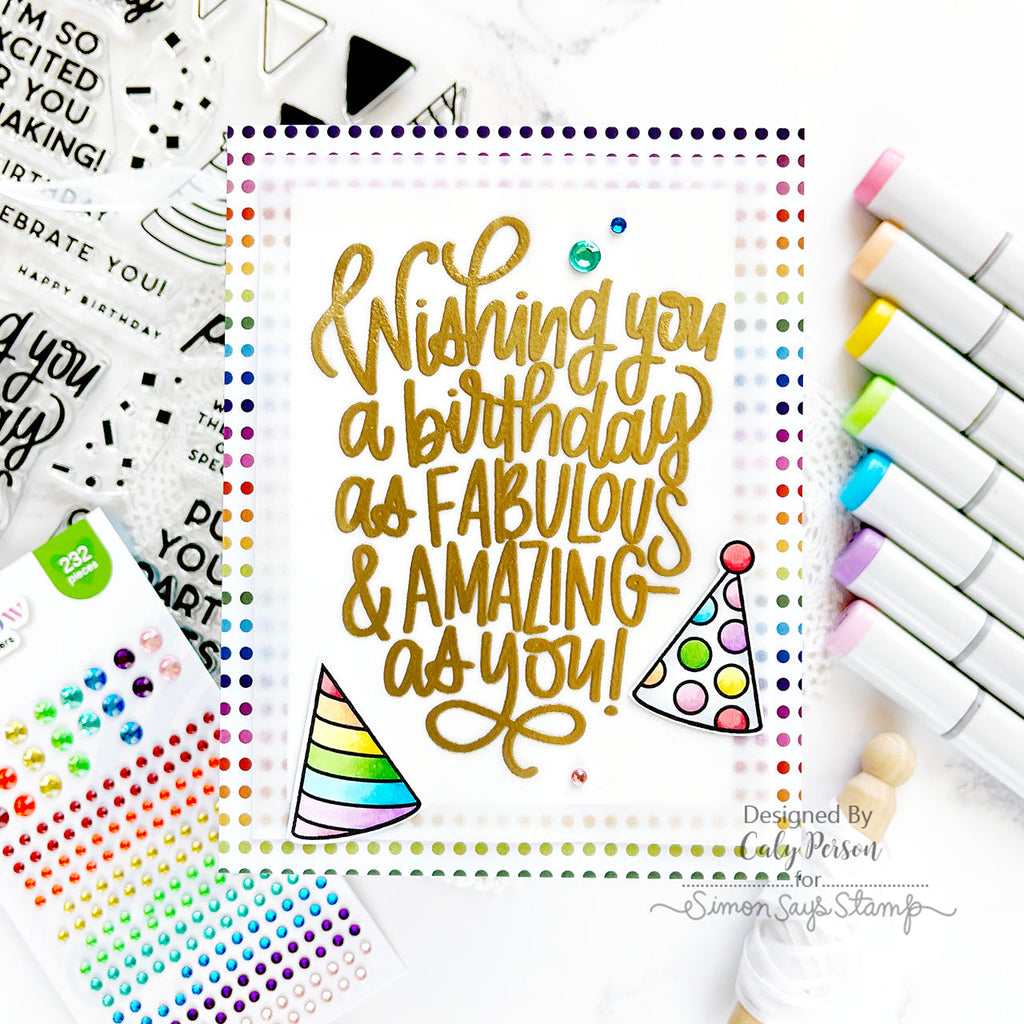 I'M SO
EXCITED
YOU
MAKING!
BIRTHDAY
CELEBRATE YOU!
HAPPY BIRTHDAY
you
SPEC
YOU
232
pieces
Wishing you
a birthday
as FABULOUS
& AMAZING
as you!
Designed By
Caly Person
for
Simon Says Stamp